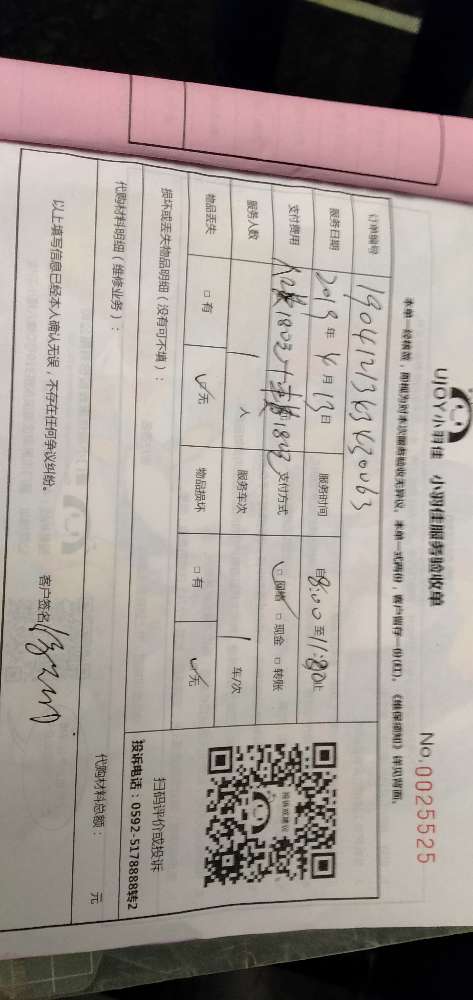 UJOY小羽佳 小羽佳服务验收单
No.0025525
本单一经核签，即视为对本次服务验收无异议。本单一式两份，客户留存一份(红)。《维保须知》详见背面。
订单编号
服务日期 2019 年 4 月 13 日 服务时间 自8:00 至 11:30止
支付费用 支付方式 □网络 □现金 □转账
服务人数 1 人 服务车次 1 车/次
物品丢失 □有 ✓无 物品损坏 □有 ✓无
损坏或丢失物品明细（没有可不填）：
投诉或建议
扫码评价或投诉
投诉电话：0592-5178888转2
代购材料明细（维修业务）： 代购材料总额： 元
以上填写信息已经本人确认无误，不存在任何争议纠纷。 客户签名